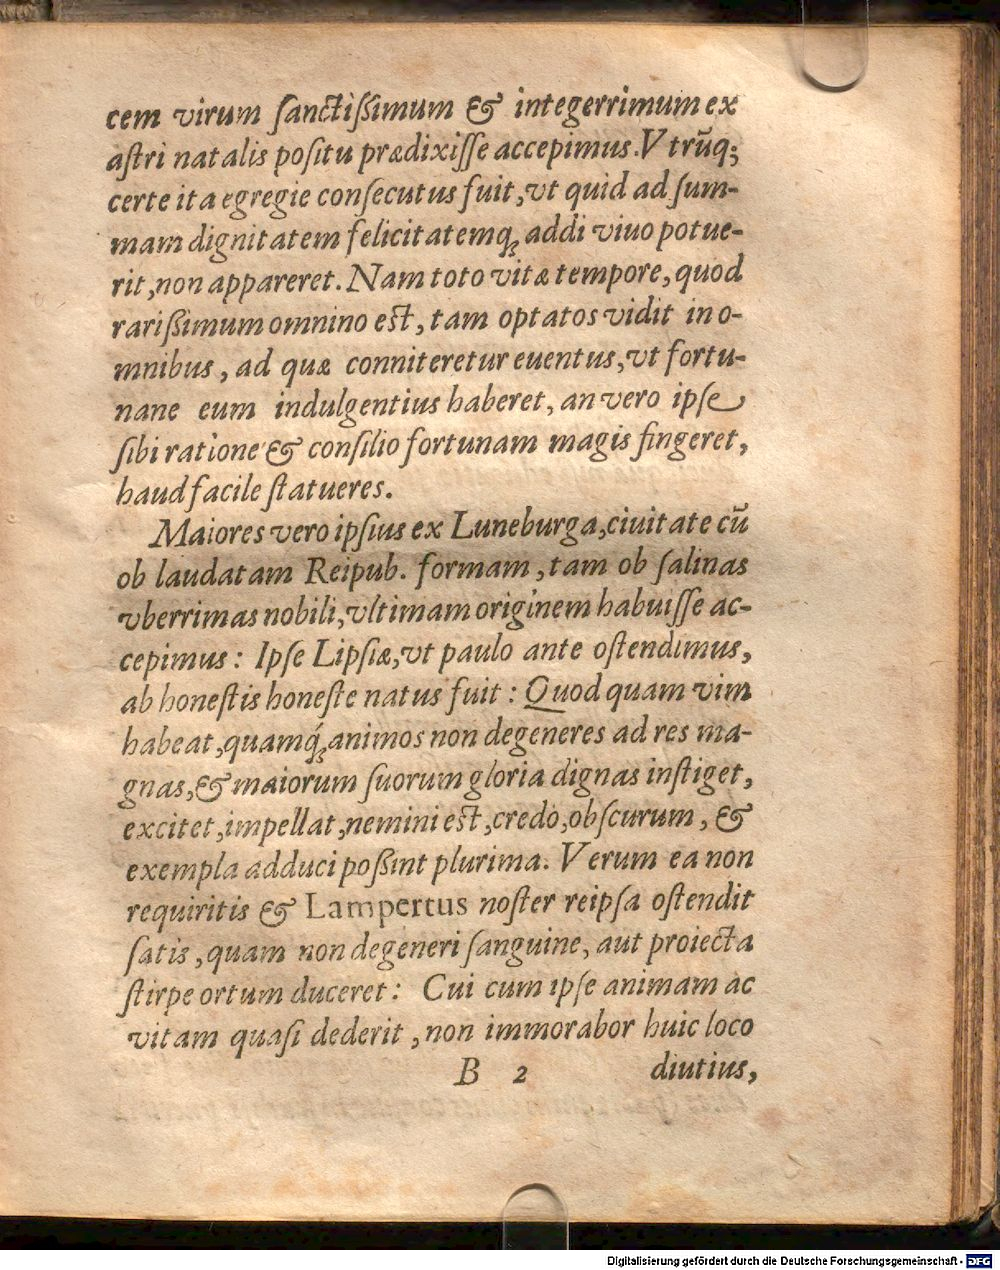 cem virum ſanctiſſimum & integerrimum ex
aſtri natalis poſitu prædixiſſe accepimus. Vtrūq;
certe ita egregie conſecutus fuit, vt quid ad ſum-
mam dignitatem felicitatemq́; addi viuo potue-
rit, non appareret. Nam toto vitæ tempore, quod
rariſſimum omnino eſt, tam optatos vidit in o-
mnibus, ad quæ conniteretur euentus, vt fortu-
nane eum indulgentius haberet, an vero ipſe
ſibi ratione & conſilio fortunam magis fingeret,
haud facile ſtatueres.
Maiores vero ipſius ex Luneburga, ciuitate cū
ob laudatam Reipub. formam, tam ob ſalinas
vberrimas nobili, vltimam originem habuiſſe ac-
cepimus: Ipſe Lipſiæ, vt paulo ante oſtendimus,
ab honeſtis honeſte natus fuit: Quod quam vim
habeat, quamq́; animos non degeneres ad res ma-
gnas, & maiorum ſuorum gloria dignas inſtiget,
excitet, impellat, nemini eſt, credo, obſcurum, &
exempla adduci poſſint plurima. Verum ea non
requiritis & Lampertus noſter reipſa oſtendit
ſatis, quam non degeneri ſanguine, aut proiecta
ſtirpe ortum duceret: Cui cum ipſe animam ac
vitam quaſi dederit, non immorabor huic loco
B 2 diutius,
Digitalisierung gefördert durch die Deutsche Forschungsgemeinschaft - DFG